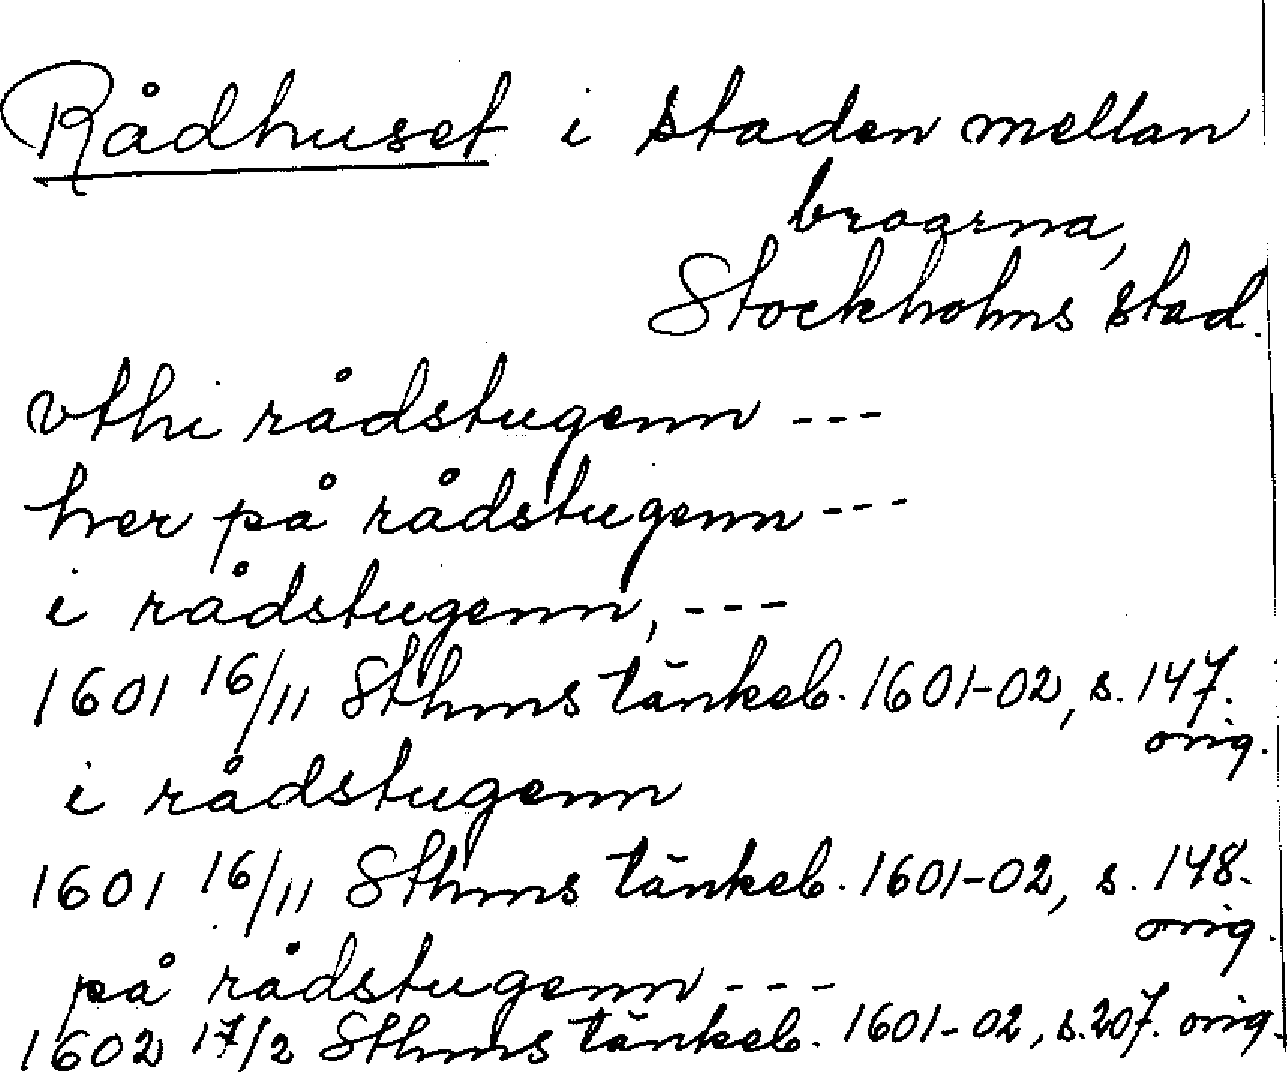 Rådhuset i staden mellan
broarna,
Stockholms stad.
vthi rådstugenn ---
her på rådstugenn ---
i rådstugenn, ---
1601 16/11 Sthms tänkeb. 1601-02, s. 147.
orig.
i rådstugenn
1601 16/11 Sthms tänkeb. 1601-02, s. 148.
orig.
på rådstugenn ---
1602 17/2 Sthms tänkeb. 1601-02, s. 207. orig.